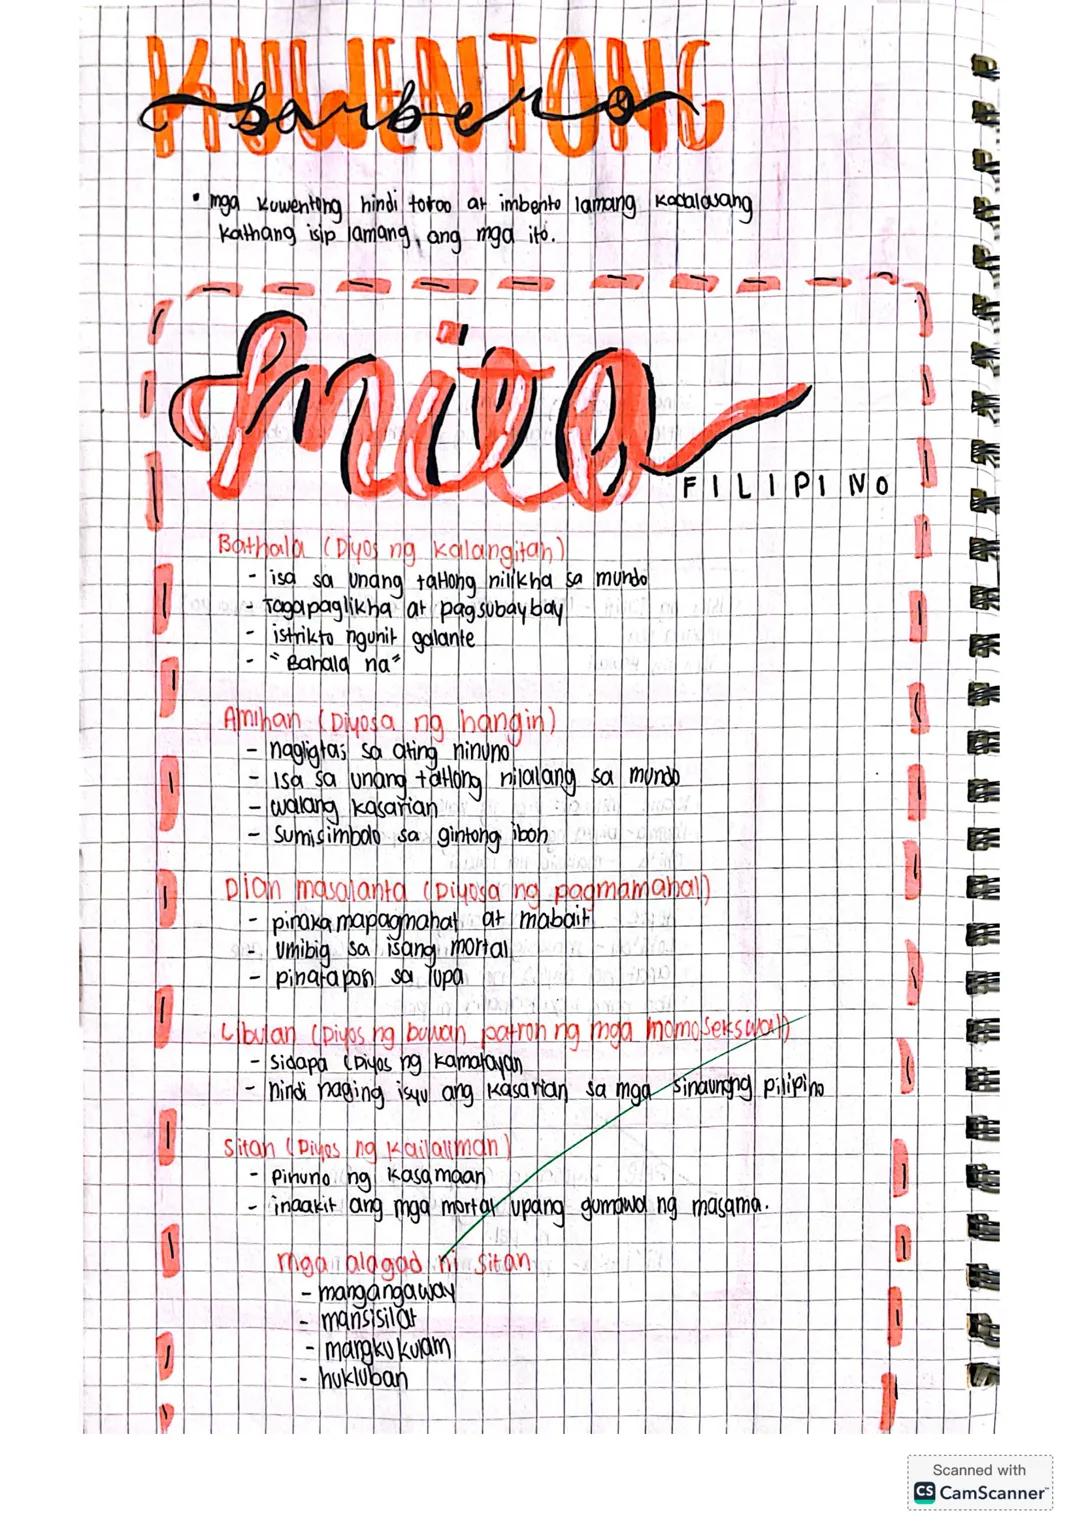 KUWENTONG
barbero
• mga kuwentong hindi totoo at imbento lamang kadalasang
kathang isip lamang ang mga ito.
mito
FILIPINO
Bathala (Diyos ng kalangitan)
- isa sa unang tatlong nilikha sa mundo
- Tagapaglikha at pagsubaybay
- istrikto ngunit galante
- "Bahala na"
Amihan (Diyosa ng hangin)
- nagligtas sa ating ninuno
- Isa sa unang tatlong nilalang sa mundo
- walang kasarian
- Sumisimbolo sa gintong ibon
Dian masalanta (Diyosa ng pagmamahal)
- pinaka mapagmahat at mabait
- umibig sa isang mortal
- pinatapon sa lupa
Libulan (Diyos ng buwan patron ng mga homosekswal)
- sidapa (Diyos ng kamatayan
- hindi naging isyu ang kasarian sa mga sinaunang pilipino
Sitan (Diyos ng kailaliman)
- Pinuno ng kasamaan
- inaakit ang mga mortal upang gumawa ng masama.
mga alagad ni sitan
- mangangaway
- mansisilat
- mangkukulam
- hukluban
Scanned with
CS CamScanner